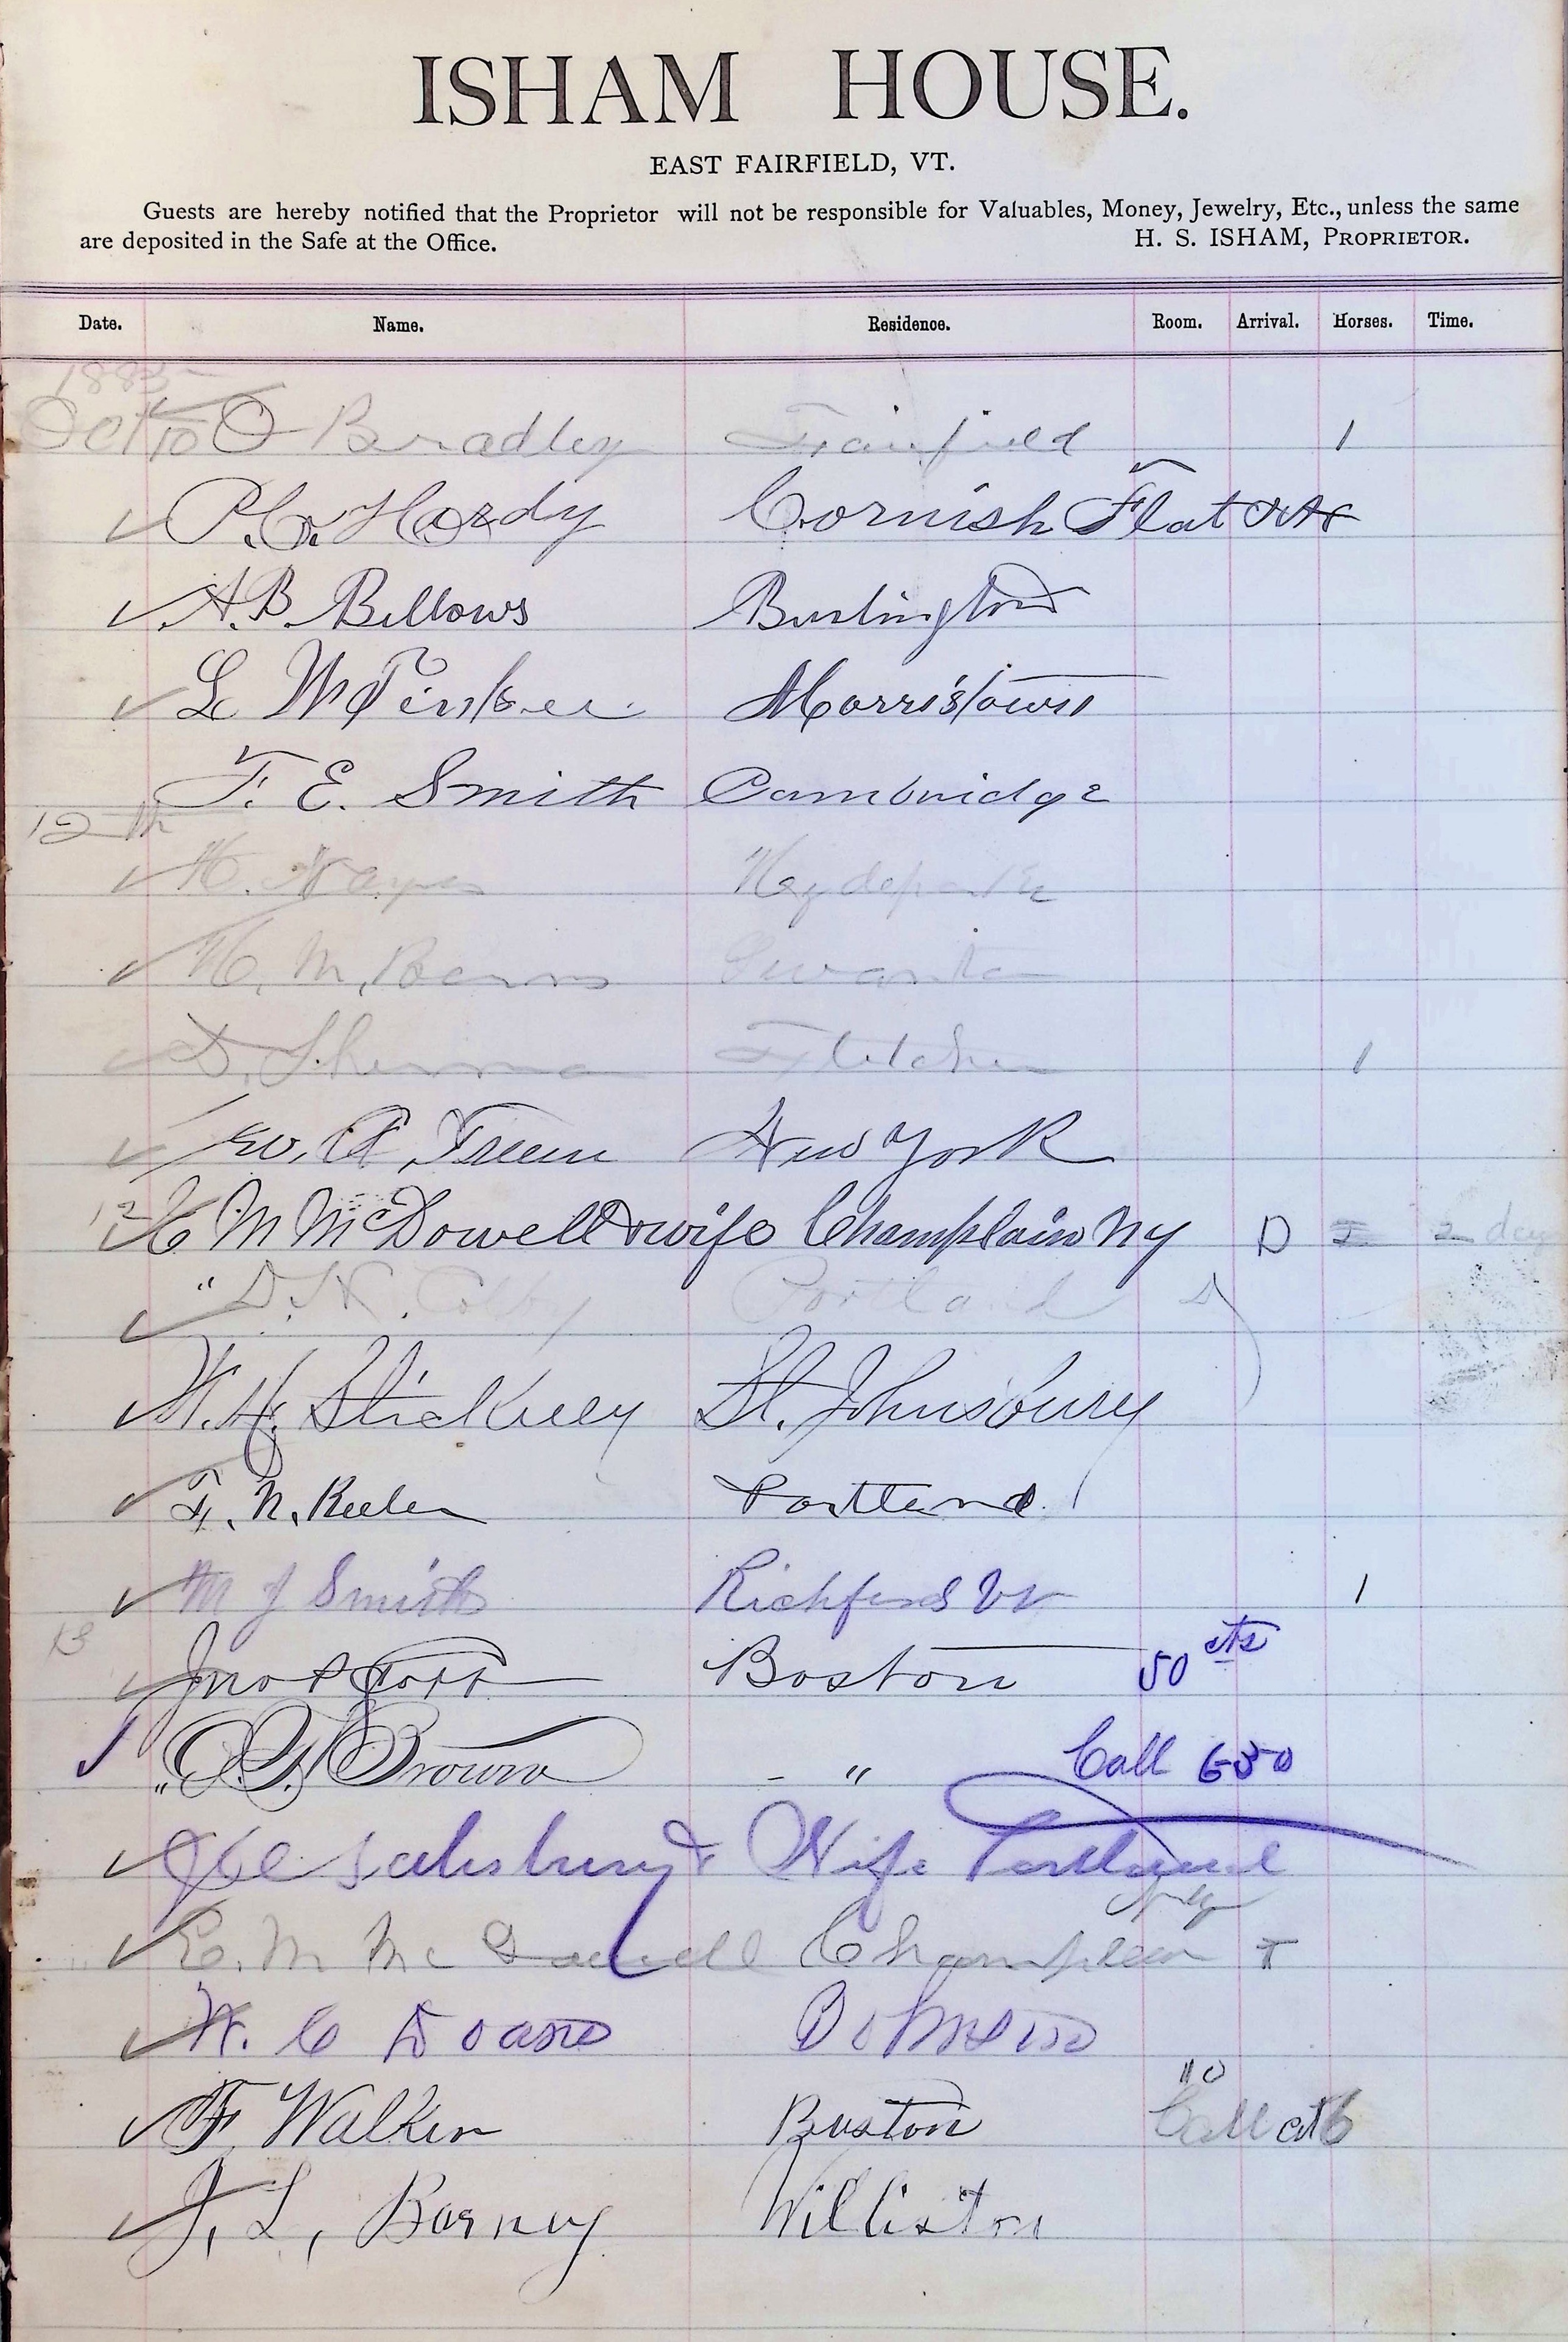 ISHAM HOUSE.
EAST FAIRFIELD, VT.
Guests are hereby notified that the Proprietor will not be responsible for Valuables, Money, Jewelry, Etc., unless the same
are deposited in the Safe at the Office. H. S. ISHAM, PROPRIETOR.
Date. Name. Residence. Room. Arrival. Horses. Time.
1885
Oct 10 O Bradley Fairfield 1
P. C. Hardy Cornish Flat
A. B. Bellows Burlington
L M Tinker Morristown
F. E. Smith Cambridge
12th
H. Noyes Hydepark
H. M. Barns Swanton
D. Sherman Fletcher 1
W. A. Freem New York
12 E M McDowell & wife Champlain NY D 2 day
" D. H. Colby Portland
W. H. Stickney St. Johnsbury
F. N. Keeler Portland
M J Smith Richford Vt 1
13
Jno Boston 50 cts
" Brown " Call 630
Salisbury & Wife Portland
NY
E. M. McDowell Champlain T
W. C Doane Johnson
F. Walker Boston Call at 6
J. L. Barney Williston